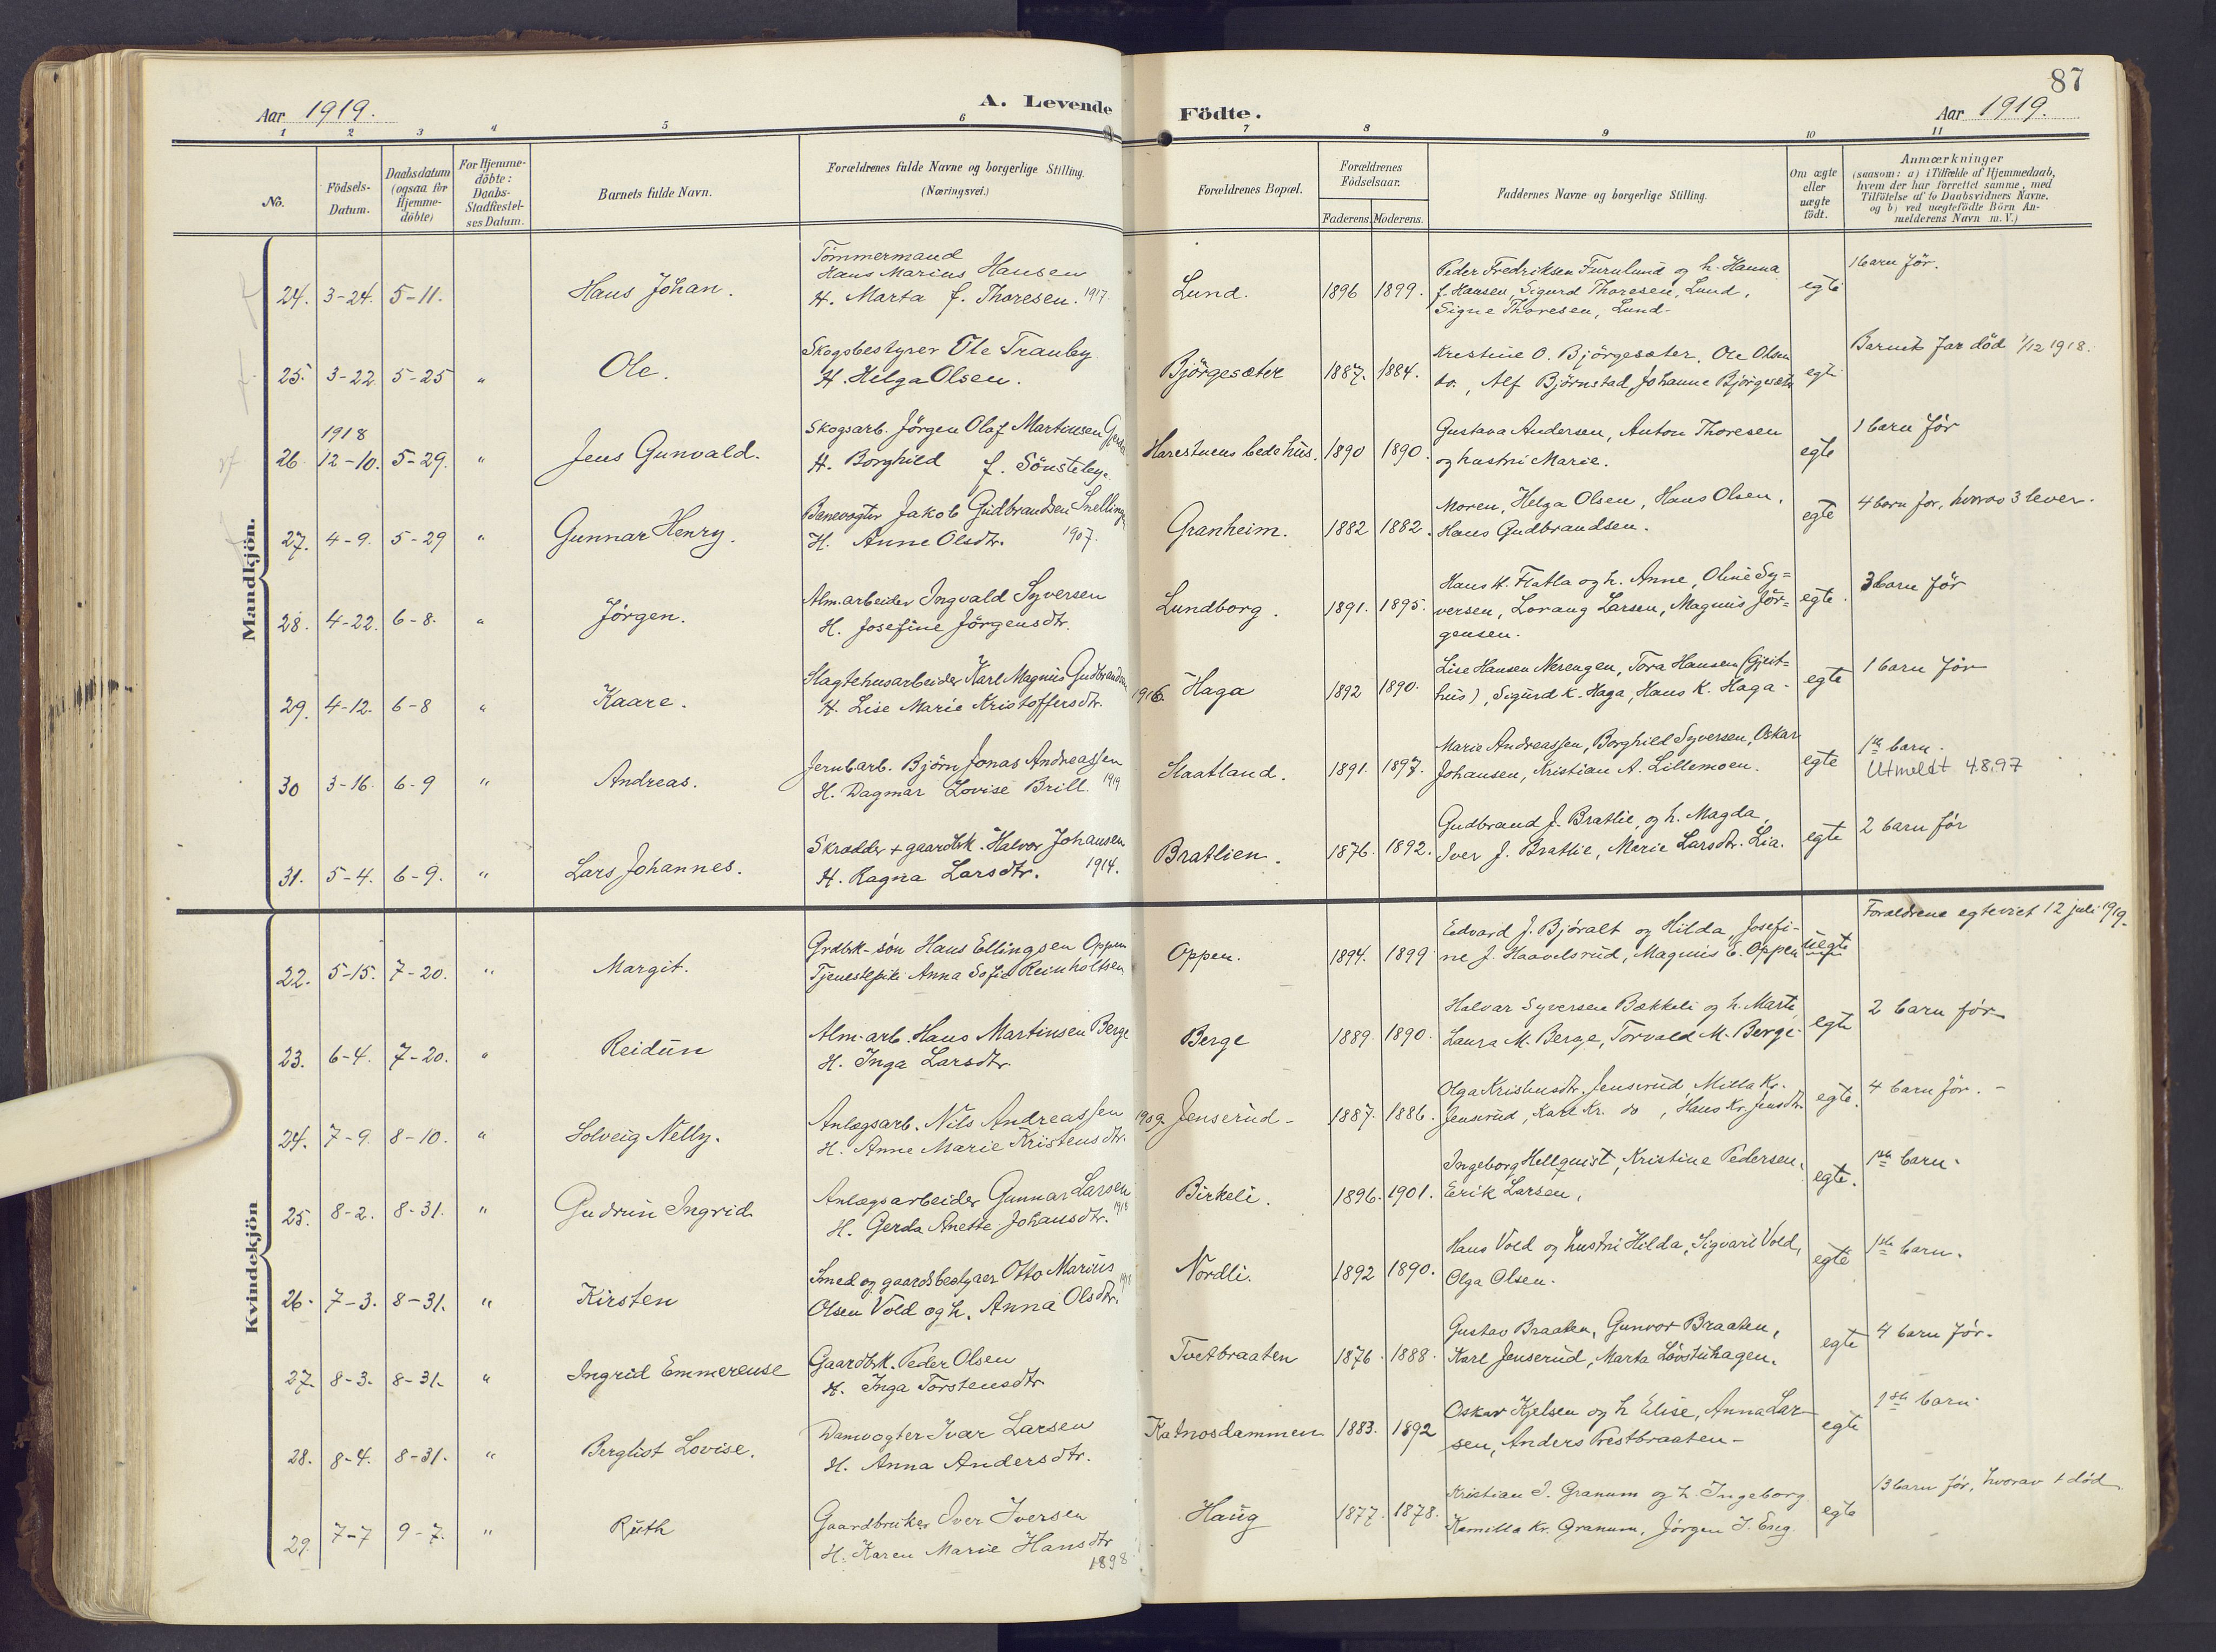 87
Aar 1919.
A. Levende Födte.
Aar 1919.
1 2 3 4 5 6 7 8 9 10 11
No.
Födsels-Datum.
Daabsdatum (ogsaa for Hjemme-döbte)
For Hjemme-döbte: Daabs-Stadfæstel-ses Datum.
Barnets fulde Navn.
Forældrenes fulde Navne og borgerlige Stilling. (Næringsvei.)
Forældrenes Bopæl.
Forældrenes Födselsaar.
Faderens. Moderens.
Faddernes Navne og borgerlige Stilling.
Om ægte eller uægte födt.
Anmærkninger
(saasom: a) i Tilfælde af Hjemmedaab,
hvem der har forrettet samme, med
Tilföielse af to Daabsvidners Navne,
og b) ved uægtefödte Börn An-
melderens Navn m. V.)
Mandkjön.
24. 3-24. 5-11. Hans Johan. Tömmermand Hans Marius Hansen
H. Marta f. Thoresen. 1917. Lund. 1896 1899. Peder Fredriksen Furulund og h. Hanna
f. Hansen, Sigurd Thoresen, Lund,
Signe Thoresen, Lund- egte 1 barn før.
25. 3-22. 5-25 " Ole. Skogsbestyrer Ole Tranby
H. Helga Olsen. Bjørgesæter 1887. 1884. Kristine O. Bjørgesæter, Ole Olsen
do., Alf Björnstad, Johanne Bjørgesæter egte Barnets far død 1/12 1918.
26. 1918 12-10. 5-29. " Jens Gunvald. Skogsarb. Jørgen Olaf Martinsen
H. Borghild f. Sönsteby. Harestuens bedehus. 1890 1890. Gustava Andersen, Anton Thoresen
og hustru Marie. egte 1 barn før
27. 4-9. 5-29 " Gunnar Henry. Banevogter Jakob Gudbrandsen
H. Anne Olsdtr. 1907. Granheim. 1882 1882. Moren, Helga Olsen, Hans Olsen,
Hans Gudbrandsen. egte 4 barn før, hvorav 3 lever.
28. 4-22. 6-8. " Jørgen. Alm.arbeider Ingvald Syversen
H. Josefine Jørgensdtr. Lundborg. 1891. 1895. Hans H. Flatla og h. Anne, Oline Sy=
versen, Lorang Larsen, Magnus Jør=
gensen. egte. 3 barn før
29. 4-12. 6-8 " Kaare. Slagtehusarbeider Karl Magnus Gudbrandsen
H. Lise Marie Kristoffersdtr. 1916. Haga 1892 1890. Lise Hansen Nerengen, Tora Hansen (Gjeit=
hus), Sigurd K. Haga, Hans K. Haga- egte 1 barn før
30 3-16. 6-9 " Andreas. Jernb.arb. Björn Jonas Andreassen
H. Dagmar Lovise Brill. 1919 Slaatland. 1891. 1897. Marie Andreassen, Borghild Syversen, Oskar
Johansen, Kristian A. Lillemoen. egte 1ste barn.
Utmeldt 4.8.97
31. 5-4. 6-9. " Lars Johannes. Skrædder + gaardbrk. Halvor Johansen
H. Ragna Larsdtr. 1914. Bratlien. 1876. 1892. Gudbrand J. Bratlie, og h. Magda,
Iver J. Bratlie, Marie Larsdtr. Lia. egte 2 barn før
Kvindekjön
22. 5-15. 7-20. " Margit. Grdbrk-søn Hans Ellingsen Oppen
Tjenestepike Anna Sofie Reinholtsen Oppen. 1894. 1899 Edvard J. Bjøralt og Hilda, Josefi-
ne J. Haavelsrud, Magnus E. Oppen uegte Forældrene egteviet 12 juli 1919.
23. 6-4. 7-20. " Reidun Alm.arb. Hans Martinsen Berge
H. Inga Larsdtr. Berge 1889. 1890. Halvar Syversen Bækkeli og h. Marte,
Laura M. Berge, Torvald M. Berge- egte 2 barn før
24. 7-9. 8-10. " Solveig Nelly. Anlægsarb. Nils Andreassen
H. Anne Marie Kristensdtr. 1909. Jenserud- 1887. 1886. Olga Kristensdtr. Jenserud, Milla Kr.
Jenserud, Karl Kr. do, Hans Kr. egte. 4 barn før.-
25. 8-2. 8-31. " Gudrun Ingrid Anlægsarbeider Gunnar Larsen
H. Gerda Anette Johansdtr. 1918 Birkeli. 1896. 1901. Ingeborg Hellquist, Kristine Pedersen,
Erik Larsen, egte. 1ste barn.
26. 7-3. 8-31. " Kirsten Smed og gaardsbestyrer Otto Marius
Olsen Vold og h. Anna Olsdtr. Nordli. 1892 1890. Hans Vold og hustru Hilda, Sigvart Vold,
Olga Olsen. egte 1ste barn.
27. 8-3. 8-31. " Ingrid Emmerense Gaardbrk. Peder Olsen
H. Inga Torstensdtr Tveitbraaten 1876. 1888. Gustav Braaten, Gunvor Braaten,
Karl Jenserud, Marta Lövstuhagen. egte 4 barn før.
28. 8-4. 8-31. " Bergliot Lovise. Damvogter Ivar Larsen
H. Anna Andersdtr. Katnosdammen 1883. 1892 Oskar Kjelsen og h Elise, Anna Lar-
sen, Anders Prestbraaten- egte 1ste barn
29. 7-7 9-7. " Ruth Gaardbruker Iver Iversen
H. Karen Marie Hansdtr 1898 Haug 1877. 1878. Kristian I. Granum og h. Ingeborg
Kamilla Kr. Granum, Jørgen J. Eng. egte 13 barn før, hvorav 1 død